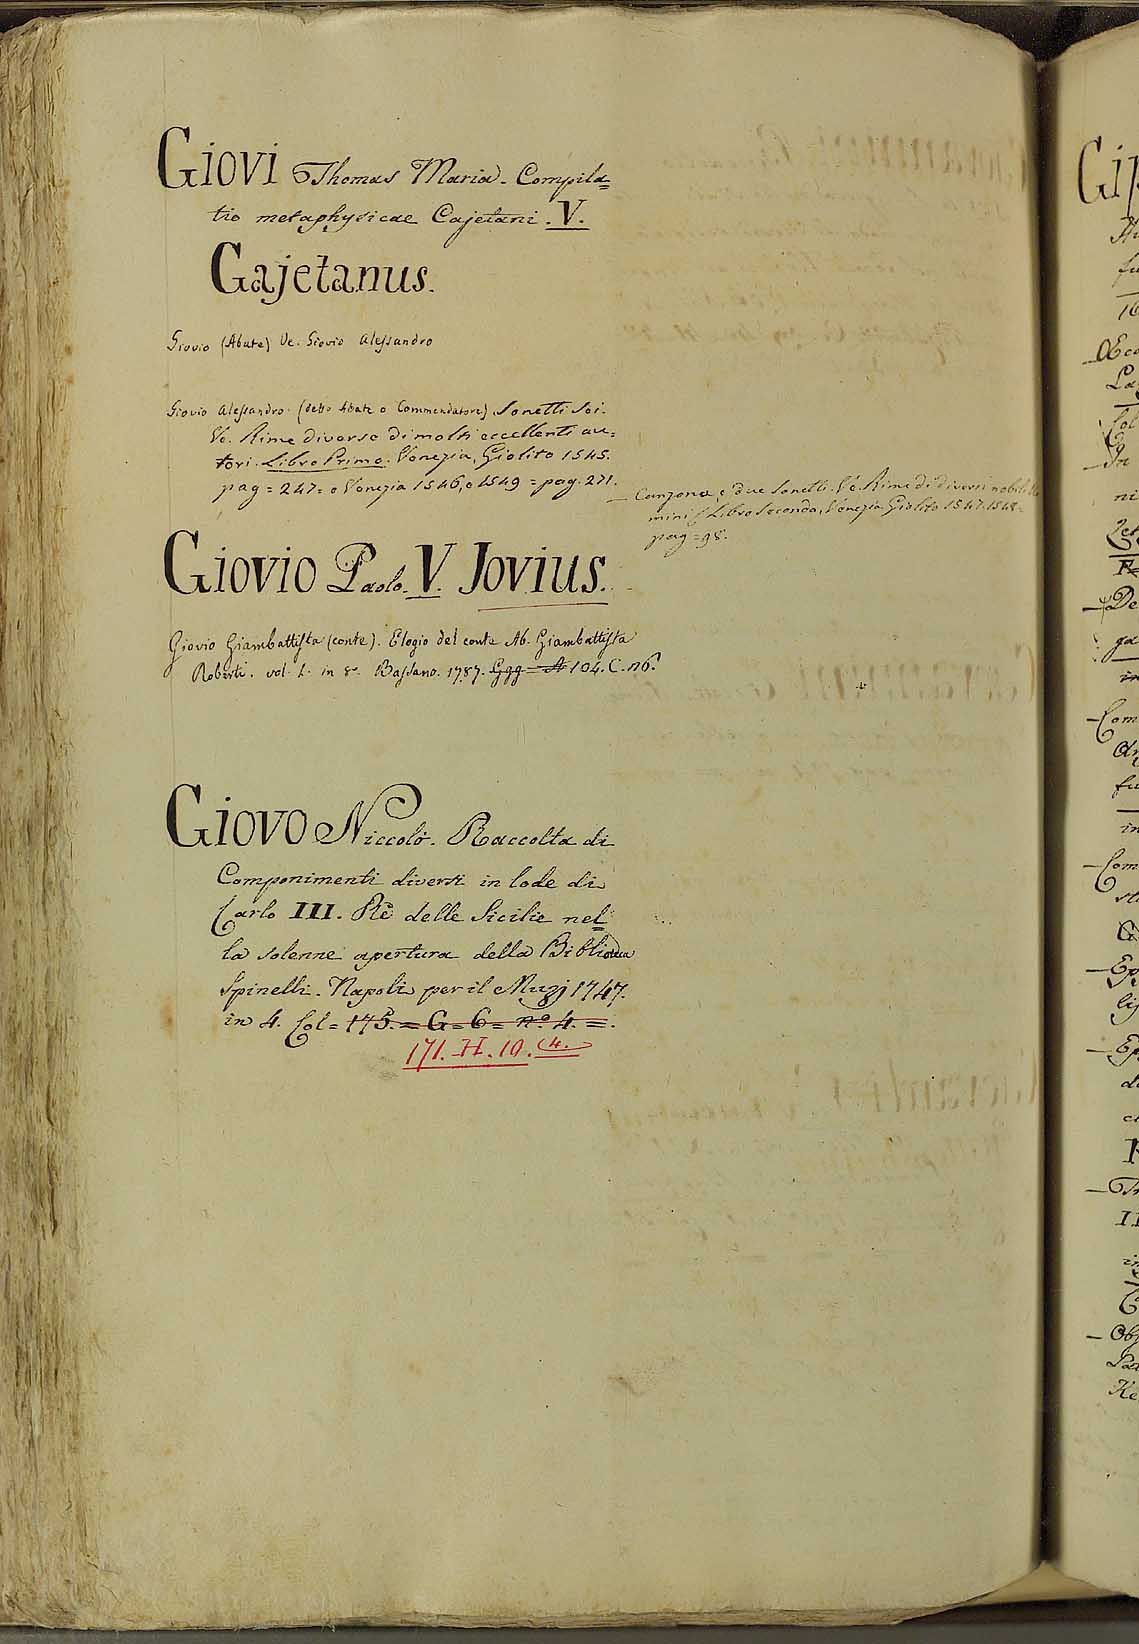 GIOVI Thomas Maria. Compila=
tio metaphysicae Cajetani. V.
Gajetanus.
Giovio (Abate) Ve. Giovio Alessandro
Giovio Alessandro. (detto Abate o Commendatore). Sonetti sei.
Ve. Rime diverse di molti eccellenti au=
tori. Libro Primo. Venezia, Giolito 1545.
pag = 247 = e Venezia 1546, e 1549 = pag. 271.
— Canzone, e due Sonetti. Ve. Rime di diversi nobili
mini & Libro Secondo, Venezia Giolito 1547. 1548 =
pag = 98.
GIOVIO Paolo. V. Jovius.
Giovio Giambattista (conte). Elogio del conte Ab. Giambattista
Roberti. vol. 1. in 8º. Bassano. 1787. Ggg = A 104. C. n6.
GIOVO Niccolò. Raccolta di
Componimenti diversi in lode di
Carlo III. Rè delle Sicilie nel=
la solenne apertura della Biblioteca
Spinelli. Napoli per il Muzj 1747.
in 4. Col = 175. = G = 6 = nº 4. =.
171. H. 10. (4.